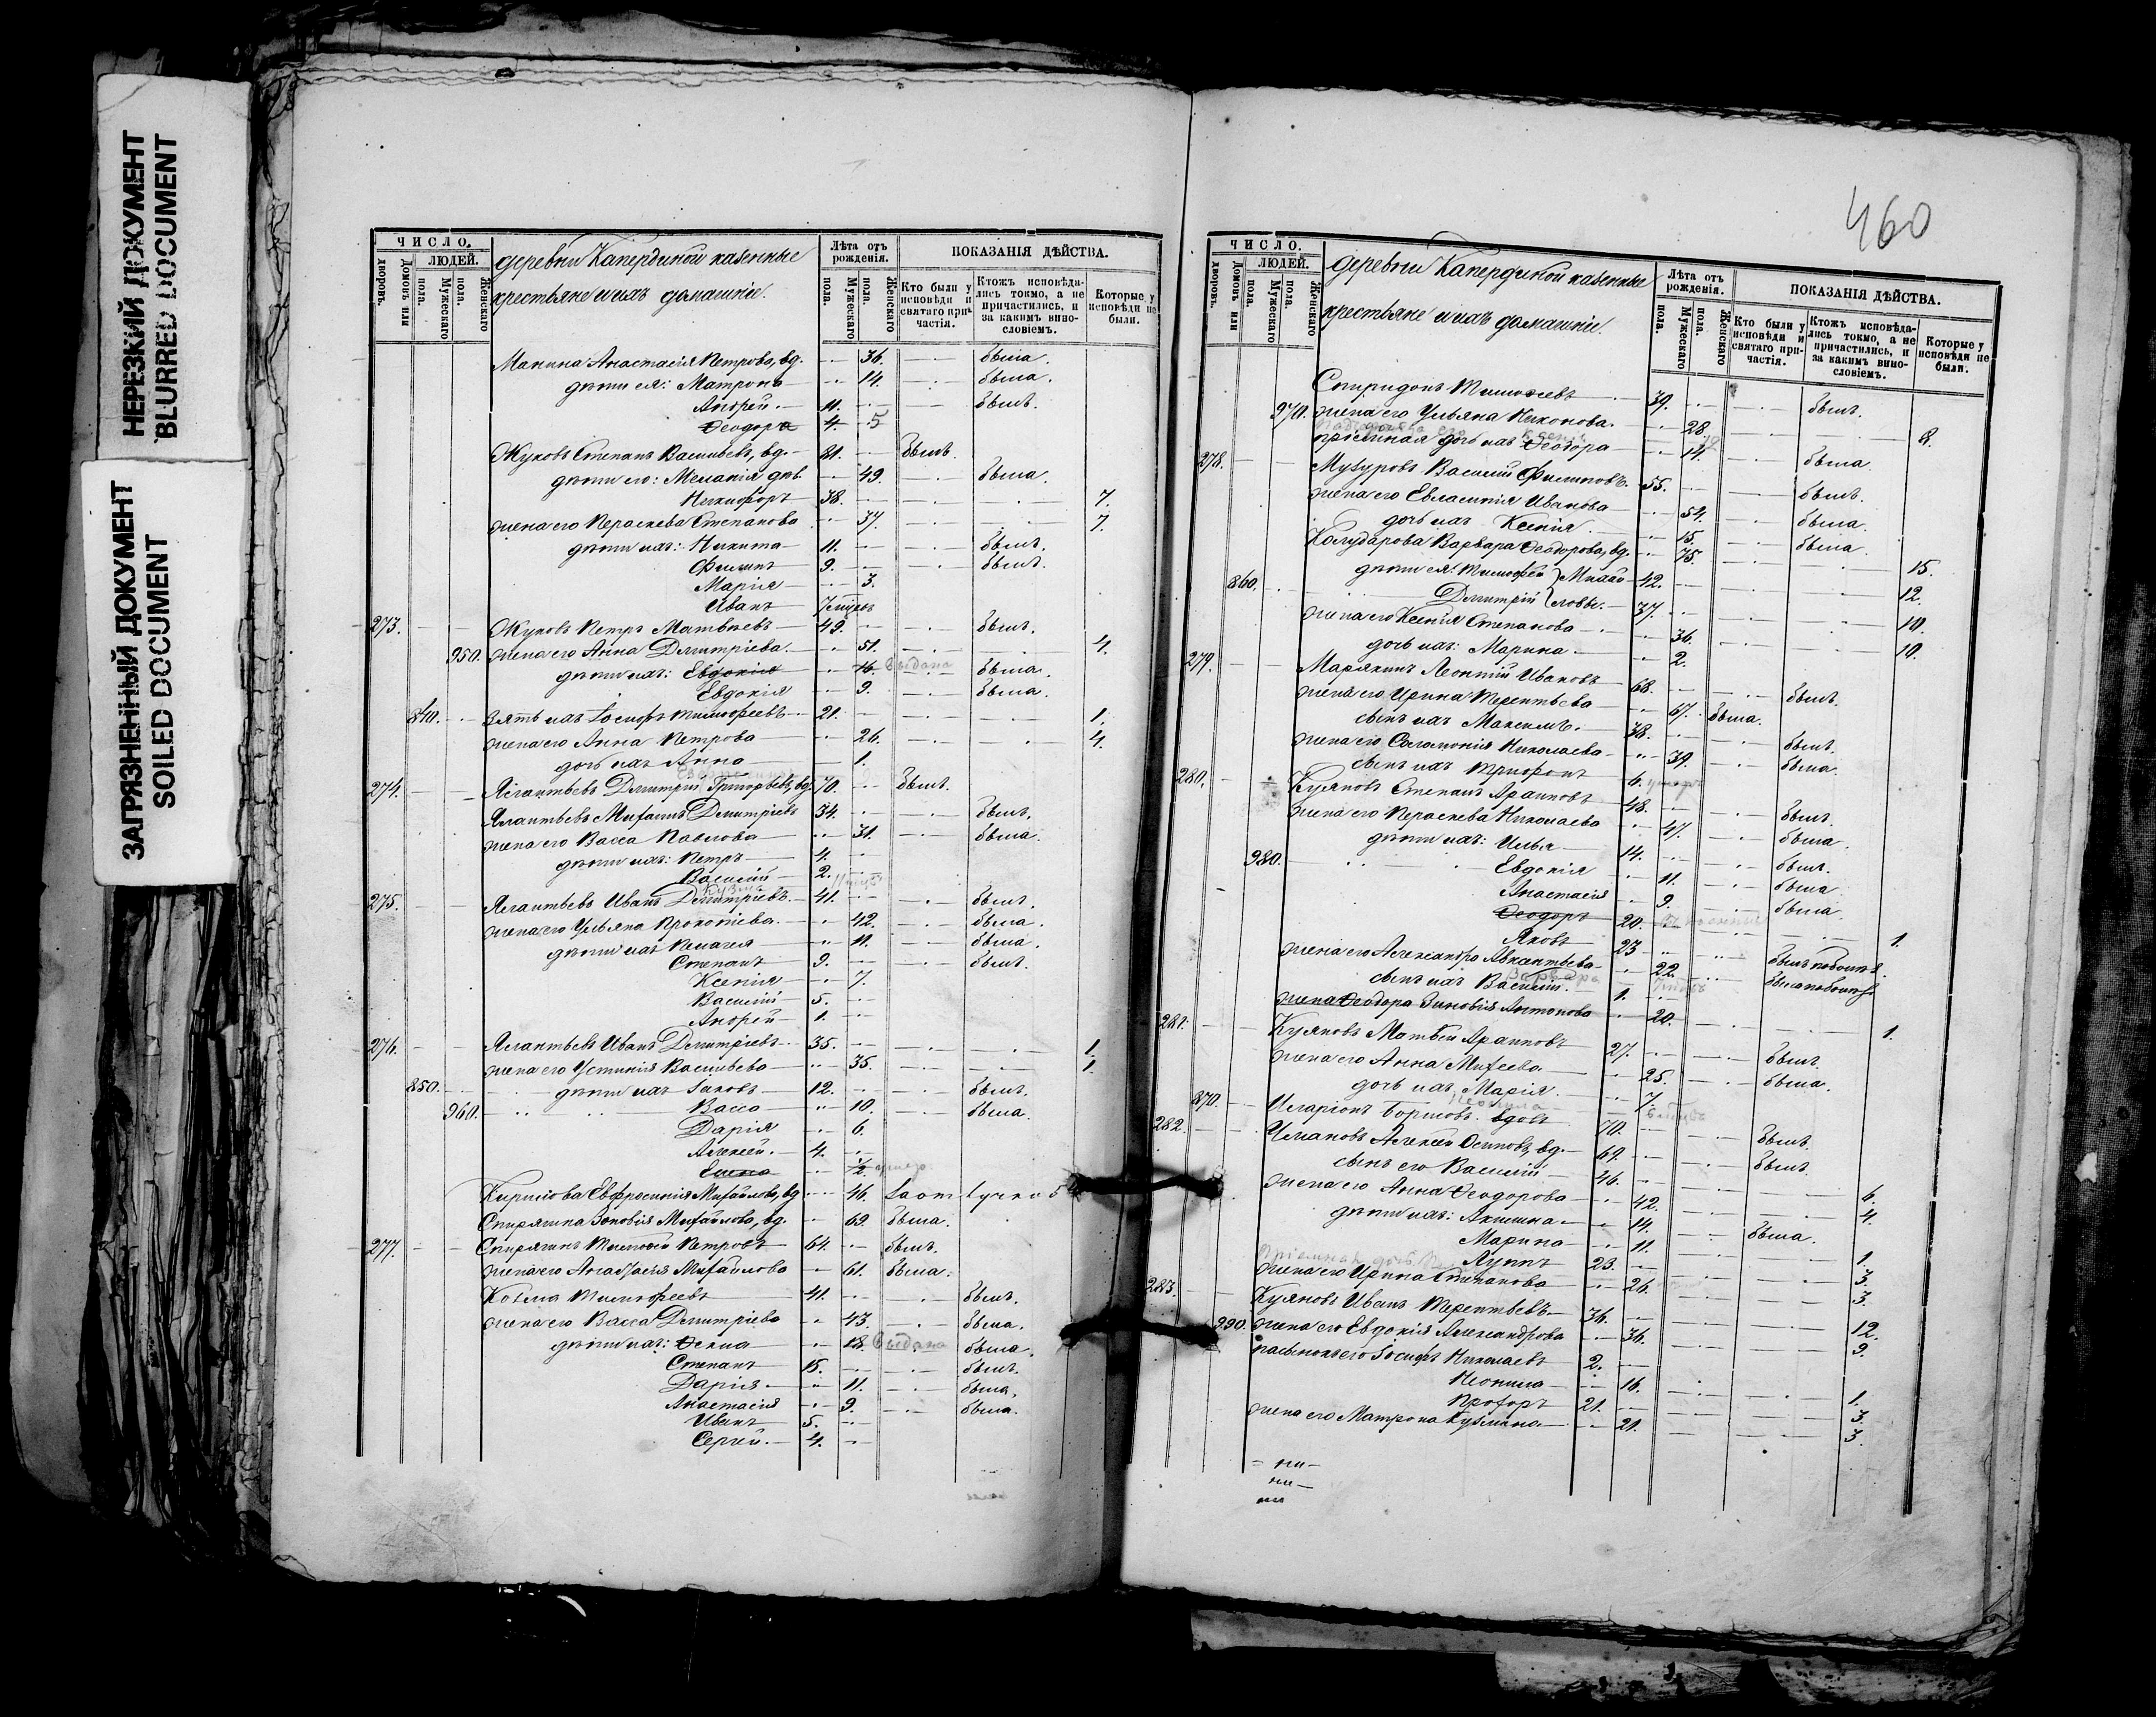 НЕРЕЗКИЙ ДОКУМЕНТ
BLURRED DOCUMENT
ЗАГРЯЗНЕННЫЙ ДОКУМЕНТ
SOILED DOCUMENT
ЧИСЛО.
ЛЮДЕЙ.
Домовъ или дворовъ.
Мужескаго пола.
Женскаго пола.
деревни Капердиной казенные
крестьяне и ихъ домашніе.
Лѣта отъ рожденія.
Мужескаго пола.
Женскаго пола.
ПОКАЗАНІЯ ДѢЙСТВА.
Кто были у исповѣди и святаго причастія.
Ктожъ исповѣдались токмо, а не причастились, и за какимъ винословіемъ.
Которые у исповѣди не были.
Манина Анастасія Петрова, вд. 36. была.
дѣти ея: Матрона 14. была.
Андрей. 11. былъ.
Ѳеодора 4. 5
Жуковъ Степанъ Васильевъ, вд. 81. былъ.
дѣти его: Меланія дѣв. 49. была.
Никифоръ 38. 7.
жена его Параскева Степанова 37. 7.
дѣти ихъ: Никита 11. былъ.
Филипъ 9. былъ.
Марія 3.
Иванъ
273. Жуковъ Петръ Матвѣевъ 49. былъ.
950. жена его Анна Димитріева. 51. 4.
дѣти ихъ: Евдокія 16. выдана была.
Евдокія 9. была.
840. Зять ихъ Іосифъ Тимофеевъ 21. 1.
жена его Анна Петрова 26. 4.
дочь ихъ Анна 1.
274. Ялантьевъ Димитрій Григорьевъ, вд. 70. былъ.
Ялантьевъ Михаилъ Димитріевъ 34. былъ.
жена его Васса Павлова 31. была.
дѣти ихъ: Петръ 4.
Василій 2.
Кузма
275. Ялантьевъ Иванъ Димитріевъ. 41. былъ.
жена его Ульяна Прокопіева. 42. была.
дѣти ихъ Пелагея 11. была.
Степанъ 9. былъ.
Ксенія 7.
Василій 5.
Андрей 1.
276. Ялантьевъ Иванъ Димитріевъ 35. 1.
жена его Устинія Васильева 35. 1.
850. дѣти ихъ Іаковъ 12. былъ.
960. Васса 10. была.
Дарія 6.
Алексей. 4.
Елена ½ умер.
Кирилова Евфросинія Михайлова, вд 46. За отлучко 5
Спирягина Зоновія Михайлова, вд. 69. была.
277. Спирягинъ Тимофей Петровъ 64. былъ.
жена его Анастасія Михайлова 61. была.
Козма Тимофеевъ 41. былъ.
жена его Васса Димитріева 43. была.
дѣти ихъ: Ѳекла 18. выдана была.
Степанъ 15. былъ.
Дарія 11. была.
Анастасія 9. была.
Иванъ 5.
Сергей. 4.
460
ЧИСЛО.
ЛЮДЕЙ.
Домовъ или дворовъ.
Мужескаго пола.
Женскаго пола.
деревни Капердиной казенные
крестьяне и ихъ домашніе.
Лѣта отъ рожденія.
Мужескаго пола.
Женскаго пола.
ПОКАЗАНІЯ ДѢЙСТВА.
Кто были у исповѣди и святаго причастія.
Ктожъ исповѣдались токмо, а не причастились, и за какимъ винословіемъ.
Которые у исповѣди не были.
Спиридонъ Тимофеевъ 39. былъ.
970. жена его Ульяна Никонова. 28. 8.
пріемная дочь ихъ Ѳеодора 14. была.
278. Музуровъ Василій Филиповъ. 55. былъ.
жена его Евлампія Иванова 54. была.
дочь ихъ Ксенія 15. была.
Колударова Варвара Ѳеодорова, вд. 75. 15.
860. дѣти ея: Тимофей } Михай 42. 12.
Димитрій } ловы. 37. 10.
жена его Ксенія Степанова 36. 10.
дочь ихъ: Марина. 2.
279. Марякинъ Леонтій Ивановъ 68. былъ.
жена его Ирина Терентьева 67. была.
сынъ ихъ Максимъ. 38. былъ.
жена его Соломонія Николаева 39. была.
сынъ ихъ Трифонъ 6.
280. Куляновъ Степанъ Архиповъ 48. былъ.
жена его Параскева Николаева 47. была.
дѣти ихъ: Илья 14. былъ.
980. Евдокія 11. была.
Анастасія 9. была.
Ѳеодоръ 20. 1.
Яковъ 23
жена его Александра Авксентьева 22.
сынъ ихъ Василій. 1.
Варвара
жена Ѳеодора Зиновія Антонова 20. 1.
281. Куляновъ Матвѣй Архиповъ 27. былъ.
жена его Анна Михеева 25. была.
дочь ихъ, Марія. 7.
870. Иларіонъ Борисовъ вдовъ 70. былъ.
282. Улановъ Алексей Осиповъ, вд. 69. былъ.
сынъ его Василій 46. 6.
жена его Анна Ѳеодорова 42. 4.
дѣти ихъ: Акилина 14. была.
Марина 11. 1.
Луппъ 23. 3.
жена его Ирина Степанова 26. 3.
283. Куляновъ Иванъ Терентьевъ 36. 12.
990. жена его Евдокія Александрова 36. 9.
пасынокъ его Іосифъ Николаевъ 2.
Неонила 16. 1.
Прохоръ 21. 3.
жена его Матрона Кузмина 21. 3.